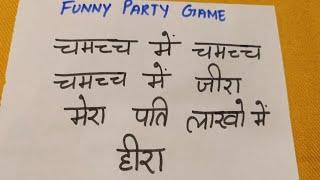 FUNNY PARTY GAME
चमच्च में चमच्च
चमच्च में जीरा
मेरा पति लाखो में
हीरा